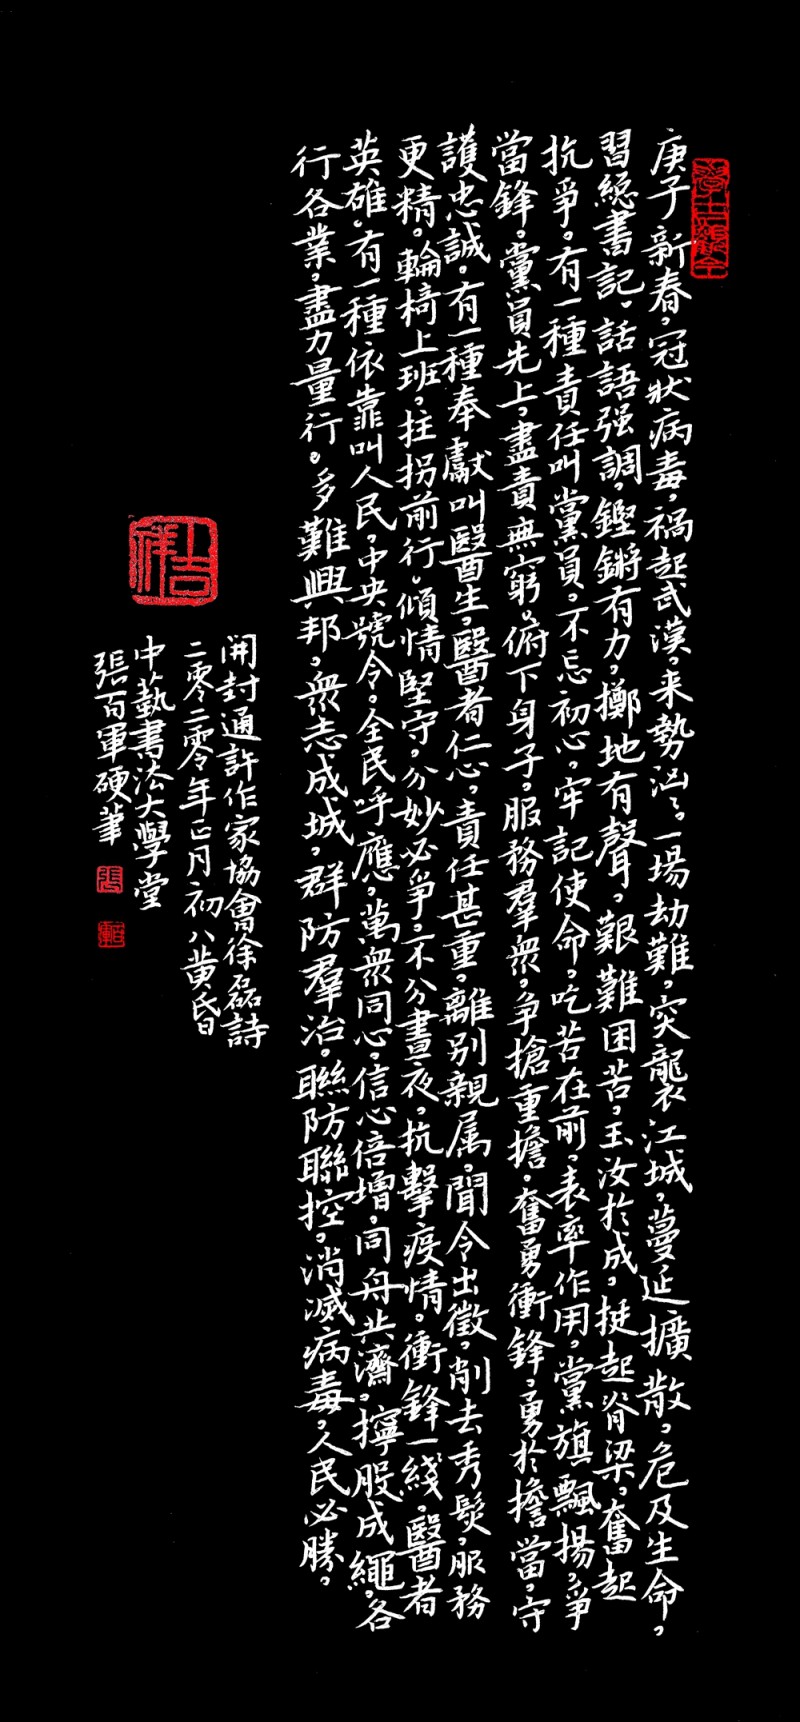 庚子新春，冠狀病毒，禍起武漢，来勢汹々。一場劫難，突襲江城，蔓延擴散，危及生命，
習總書記，話語强調，鏗鏘有力，擲地有聲，艰難困苦，玉汝於成，挺起脊梁，奮起
抗爭。有一種責任叫黨員，不忘初心，牢記使命，吃苦在前，表率作用，黨旗飄揚，爭
當鋒，黨員先上，盡責無窮。俯下身子，服務羣衆，争搶重擔，奮勇衝鋒，勇於擔當，守
護忠誠。有一種奉獻叫醫生，醫者仁心，責任甚重，離别親属，聞令出徵，削去秀髮，服務
更精。輪椅上班，拄拐前行。傾情堅守，分妙必爭，不分晝夜，抗擊疫情。衝鋒一綫，醫者
英雄。有一種依靠叫人民，中央號令。全民呼應，萬衆同心，信心倍增，同舟共濟，擰股成繩，各
行各業，盡力量行。多難興邦，衆志成城，群防羣治。聯防聯控，消滅病毒，人民必勝。
開封通許作家協會徐磊詩
二零二零年正月初八黄昏
中藝書法大學堂
張百軍硬筆
張